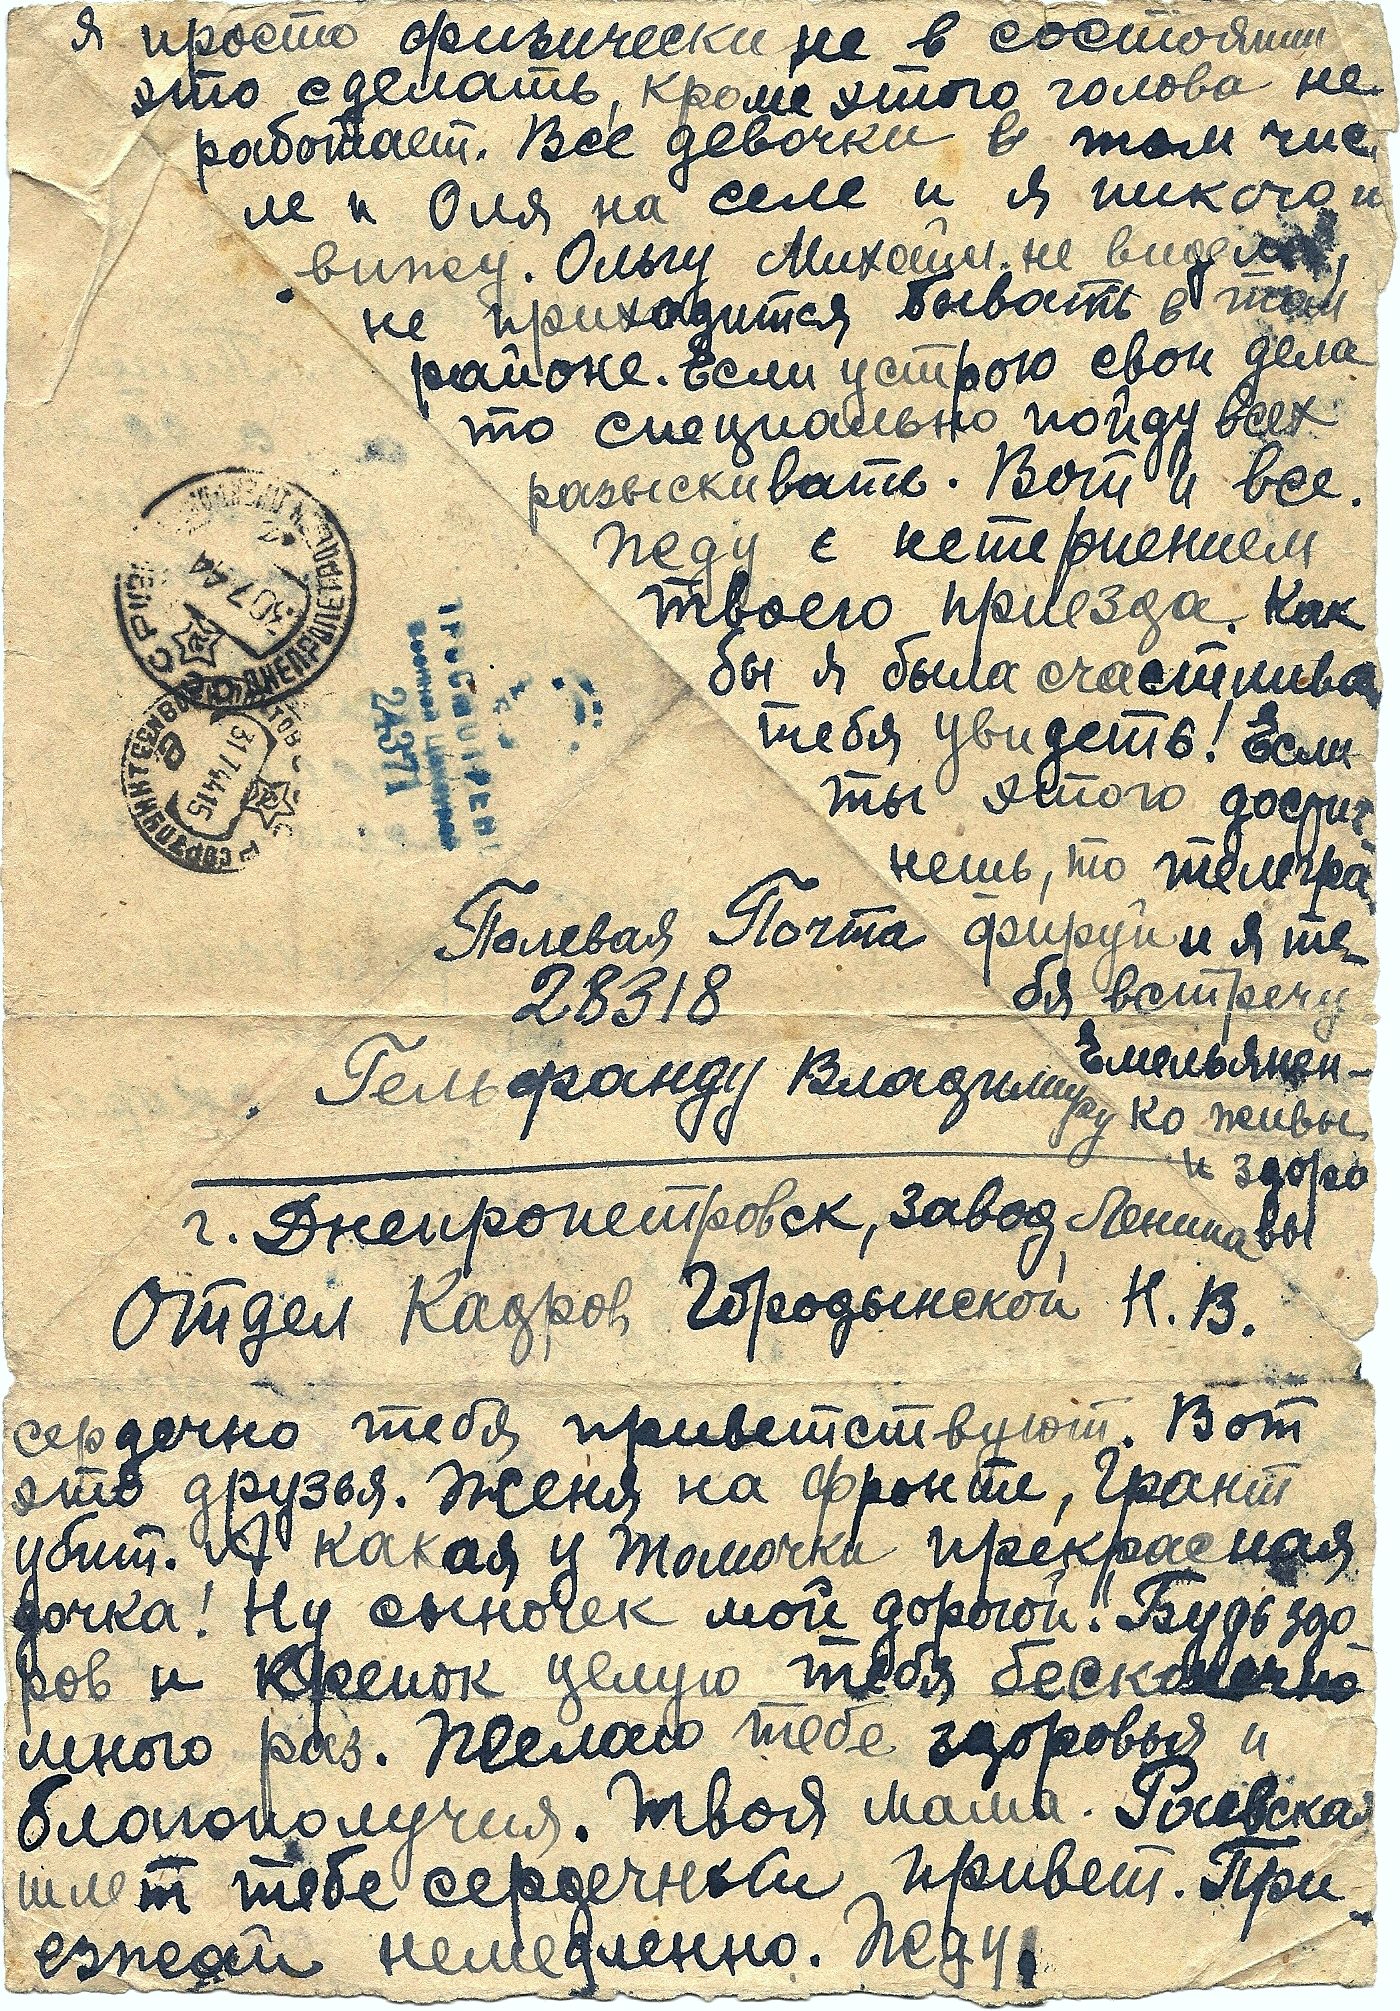 я просто физически не в состоянии
это сделать, кроме этого голова не
работает. Все девочки в том чис
ле и Оля на селе и я никого н
вижу. Ольгу Михайл. не видела,
не приходится бывать в том
районе. Если устрою свои дела
то специально пойду всех
разыскивать. Вот и все.
Жду с нетерпением
твоего приезда. Как
бы я была счастлива
тебя увидеть! Если
ты этого достиг
нешь, то телегра
фируй и я те-
бя встречу
Емельянен-
ко живы
и здоро
вы
30 7 44
ДНЕПРОПЕТРОВСК
31 7 44 15
ПРОСМОТРЕНО
Военной Цензурой
24371
Полевая Почта
28318
Гельфанду Владимиру
г. Днепропетровск, завод Ленина
Отдел Кадров Городынской Н. В.
сердечно тебя приветствуют. Вот
это друзья. Женя на фронте, Грант
убит. А какая у Томочки прекрасная
дочка! Ну сыночек мой дорогой! Будь здо
ров и крепок целую тебя бесконечно
много раз. Желаю тебе здоровья и
благополучия. Твоя мама. Раевская
шлет тебе сердечный привет. При-
езжай немедленно. Жду.